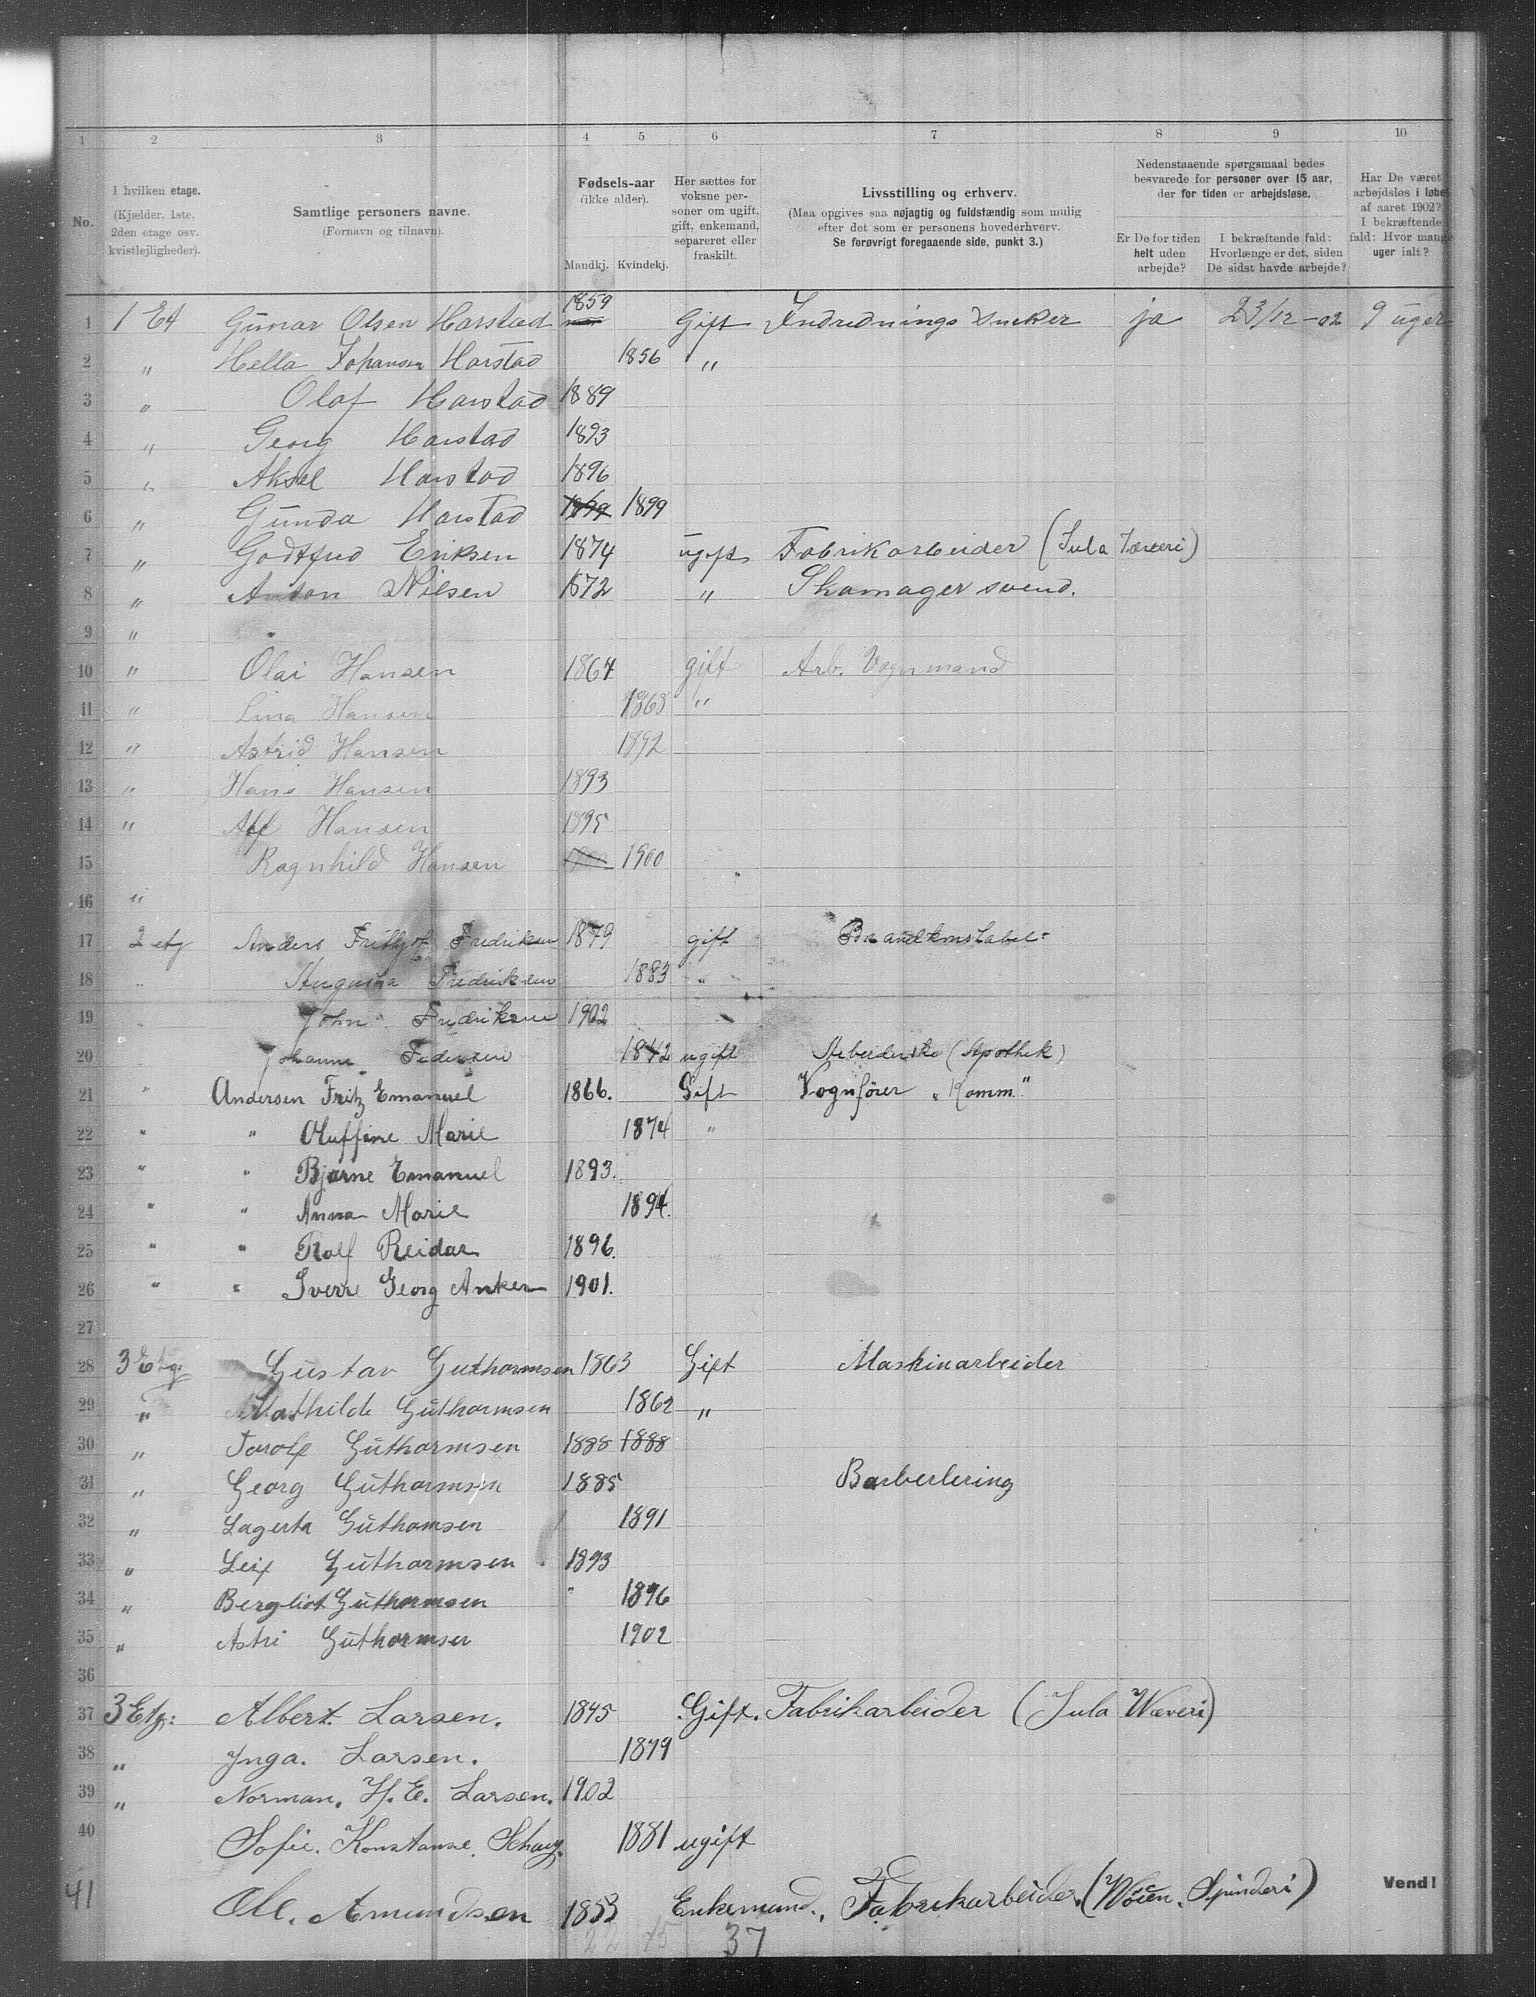 1 2 3 4 5 6 7 8 9 10
No.
I hvilken etage.
(Kjælder, 1ste,
2den etage osv.
kvistlejligheder).
Samtlige personers navne.
(Fornavn og tilnavn).
Fødsels-aar
(ikke alder).
Mandkj. Kvindekj.
Her sættes for
voksne per-
soner om ugift,
gift, enkemand,
separeret eller
fraskilt.
Livsstilling og erhverv.
(Maa opgives saa nøjagtig og fuldstændig som mulig
efter det som er personens hovederhverv.
Se forøvrigt foregaaende side, punkt 3.)
Nedenstaaende spørgsmaal bedes
besvarede for personer over 15 aar,
der for tiden er arbejdsløse.
Er De for tiden
helt uden
arbejde?
I bekræftende fald:
Hvorlænge er det, siden
De sidst havde arbejde?
Har De været
arbejdsløs i løbet
af aaret 1902?
I bekræftende
fald: Hvor mange
uger ialt?
1 1 Et Gunar Olsen Harstad 1859 Gift ja 23/12-02 9 uger
2 " Hella Johansen Harstad 1856 "
3 " Olaf Harstad 1889
4 " Georg Harstad 1893
5 " Aksel Harstad 1896
6 " Gunda Harstad 1899 1899
7 " Godtfred Eriksen 1874 ugift Fabrikarbeider (Jula Væveri)
8 " Anton Nilsen 1872 " Skomager svend.
9 "
10 " Olai Hansen 1864 gift Arb. Vognmand
11 " Lina Hansen 1868 "
12 " Astrid Hansen 1892
13 " Hans Hansen 1893
14 " Alf Hansen 1895
15 Ragnhild Hansen 1900
16 "
17 2 etg Anders Frithjof Fredriksen 1879 gift Brandkonstabel
18 " Augusta Fredriksen 1883 "
19 " John Fredriksen 1902
20 Johanne Pedersen 1842 ugift Arbeiderske (Apothek)
21 " Andersen Fritz Emanuel 1866. Gift Vognfører "Komm."
22 " " Oluffine Marie 1874 "
23 " " Bjarne Emanuel 1893.
24 " " Anna Marie 1894.
25 " " Rolf Reidar 1896.
26 " " Sverre Georg Anker 1901.
27
28 3 Etg: Gustav Guthormsen 1863 Gift Maskinarbeider
29 " Mathilde Guthormsen 1862 "
30 " Torolf Guthormsen 1888 1888
31 " Georg Guthormsen 1885 Barberlering
32 " Lagerta Guthomsen 1891
33 " Leif Guthormsen 1893
34 " Bergliot Guthormsen " 1896
35 " Astri Guthormsen 1902
36
37 3 Etg: Albert Larsen. 1845 Gift. Fabrikarbeider (Jula Væveri)
38 " Inga. Larsen. 1879
39 " Norman. H. E. Larsen. 1902
40 Sofie. Konstanse. 1881 ugift
41 Ole. Amundsen 1853 Enkemand., Fabrikarbeider. (Vøien. Spinderi)
Vend!
22 15 37